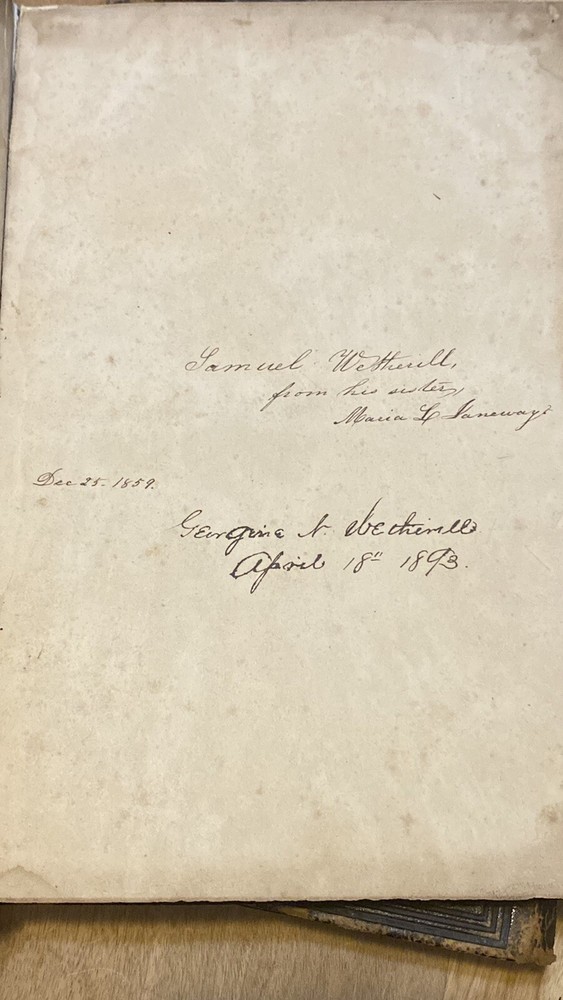 Samuel Wetherill,
from his sister,
Maria L Janeway.
Dec 25. 1859.
Georgina N. Wetherill
April 18" 1893.